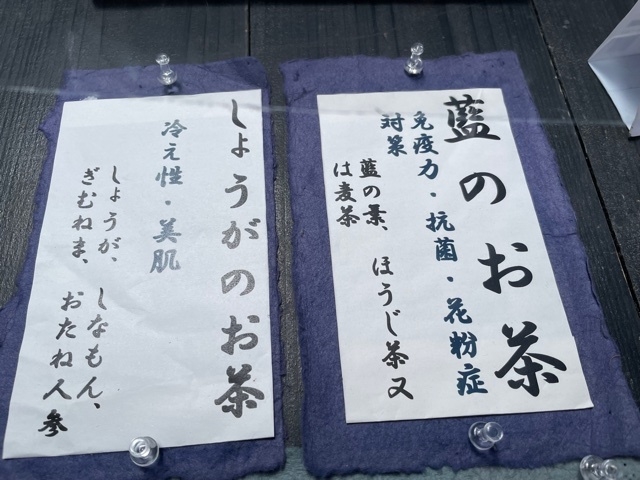 藍のお茶
免疫力・抗菌・花粉症
対策
藍の葉、ほうじ茶又
は麦茶
しょうがのお茶
冷え性・美肌
しょうが、しなもん、
ぎむねま、おたね人参